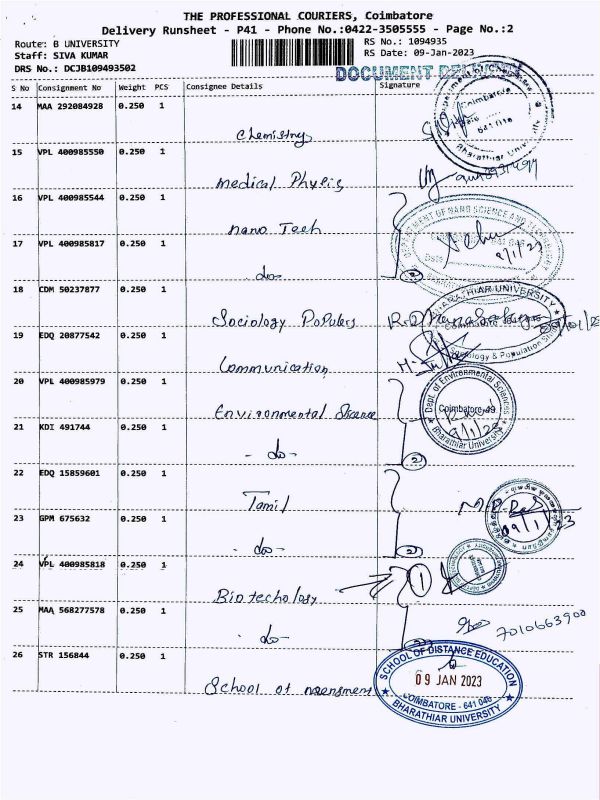 THE PROFESSIONAL COURIERS, Coimbatore
Delivery Runsheet - P41 - Phone No.:0422-3505555 - Page No.:2
Route: B UNIVERSITY
RS No.: 1094935
Staff: SIVA KUMAR
RS Date: 09-Jan-2023
DRS No.: DCJB109493502
DOCUMENT
S No Consignment No Weight PCS Consignee Details Signature
14 MAA 292084928 0.250 1
Chemistry
Coimbatore
641 046
Bharathiar University
15 VPL 400985550 0.250 1
Medical Physics
16 VPL 400985544 0.250 1
Nano Tech
DEPARTMENT OF NANO SCIENCE AND
17 VPL 400985817 0.250 1
9/1/23
- do -
2
18 CDM 50237877 0.250 1
BHARATHIAR UNIVERSITY
Sociology
Sociology & Population
19 EDQ 20877542 0.250 1
Communication
20 VPL 400985979 0.250 1
Dept. of Environmental Sciences
Coimbatore-49
9/1/23
Bharathiar University
Environmental
21 KDI 491744 0.250 1
- do -
2
22 EDQ 15859601 0.250 1
Tamil
23 GPM 675632 0.250 1
09/1/23
- do -
2
24 VPL 400985818 0.250 1
1
Biotechology
25 MAA 568277578 0.250 1
7010663900
- do -
26 STR 156844 0.250 1
School of
SCHOOL OF DISTANCE EDUCATION
09 JAN 2023
COIMBATORE - 641 046
BHARATHIAR UNIVERSITY